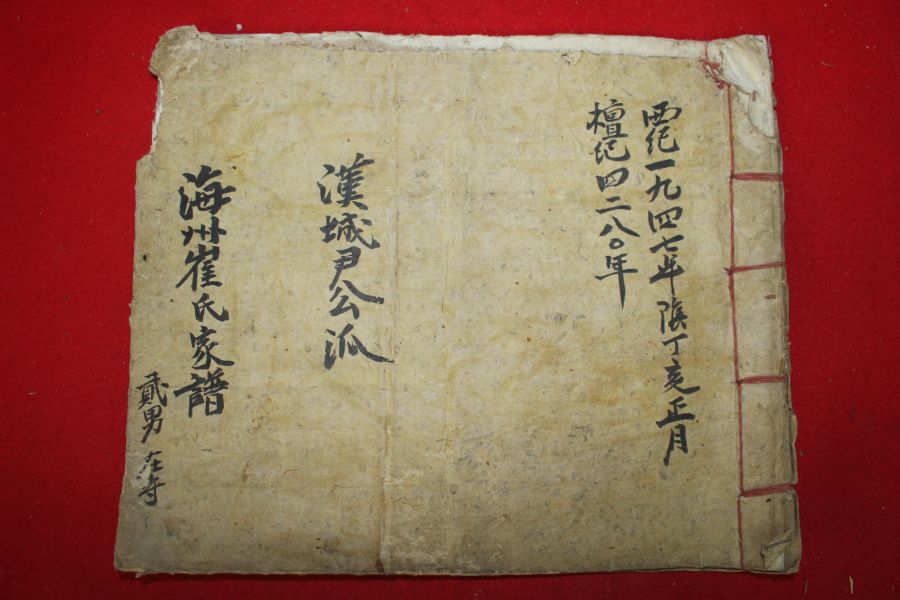 西紀一九四七年陰丁亥正月
檀紀四二八〇年
漢城尹公派
海州崔氏家譜
貳男 在寺